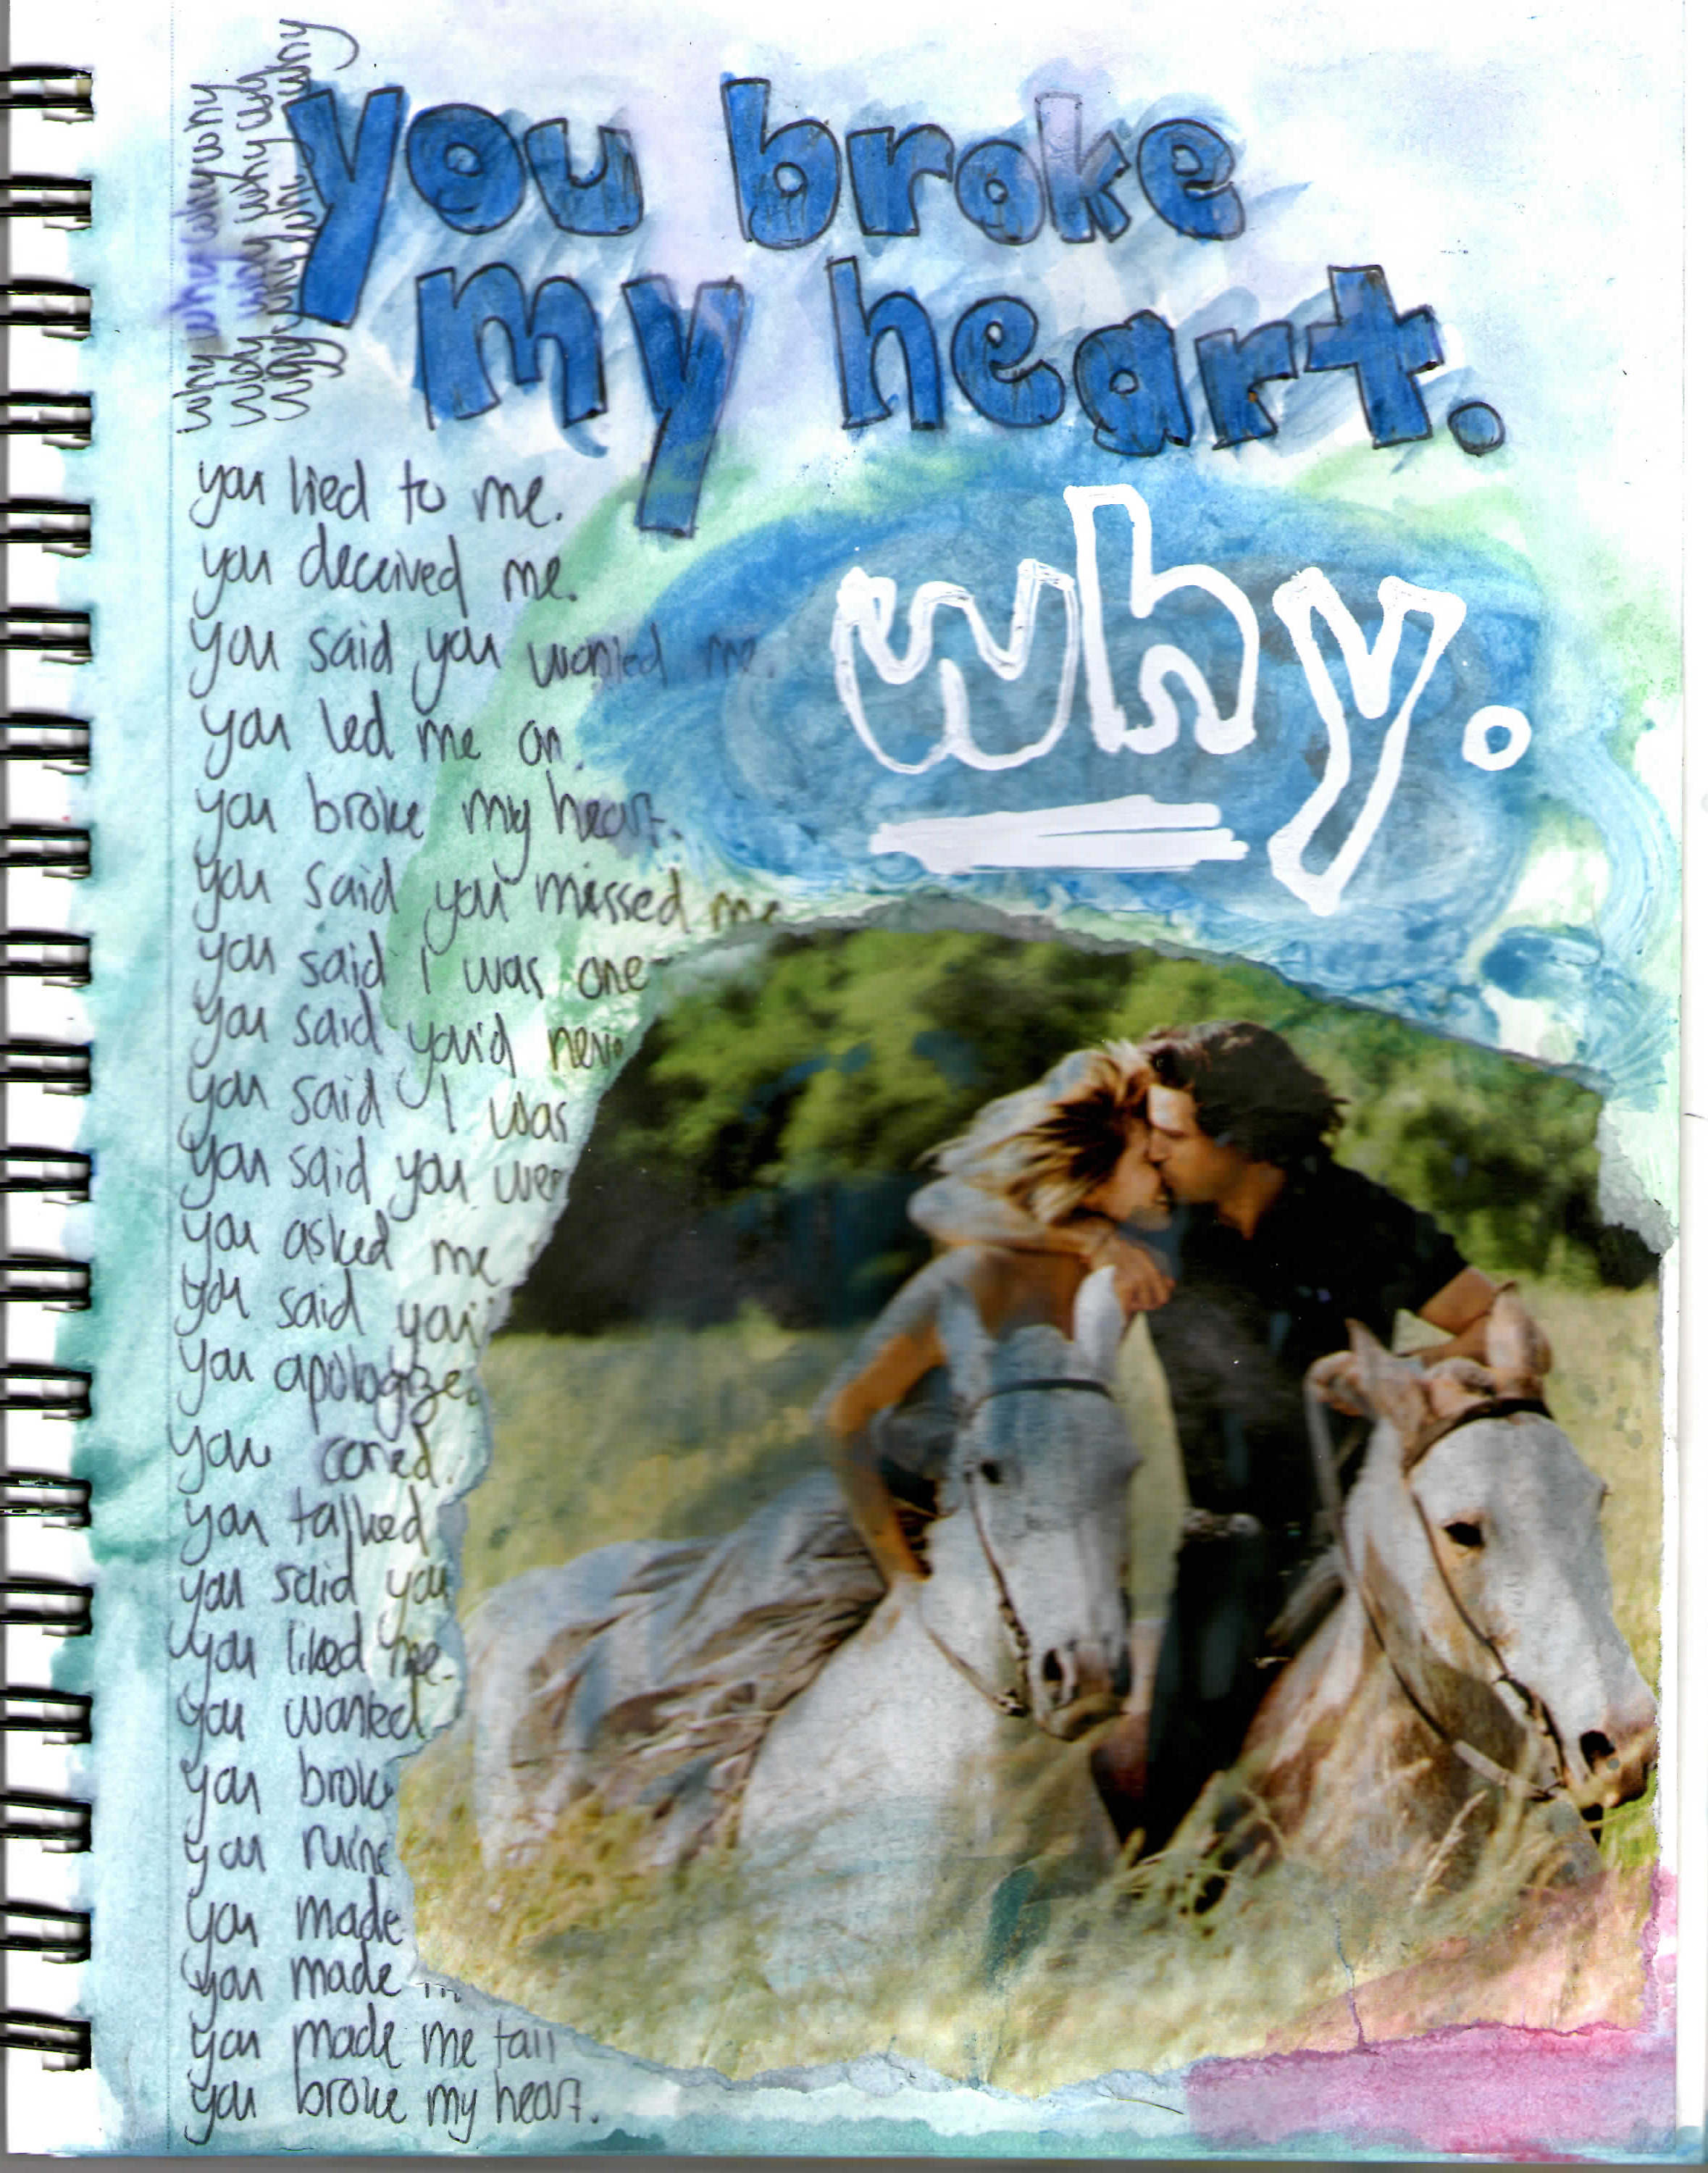 why why why why
why why why why why
why why why why why
you broke
my heart.
why.
you lied to me.
you deceived me.
you said you wanted me.
you led me on.
you broke my heart.
you said you missed me
you said I was one
you said you'd neve
you said I was
you said you wer
you asked me
you said you
you apologize
you cared.
you talked
you said you
you liked me.
you wanted
you broke
you ruine
you made
you made m
you made me fall
you broke my heart.